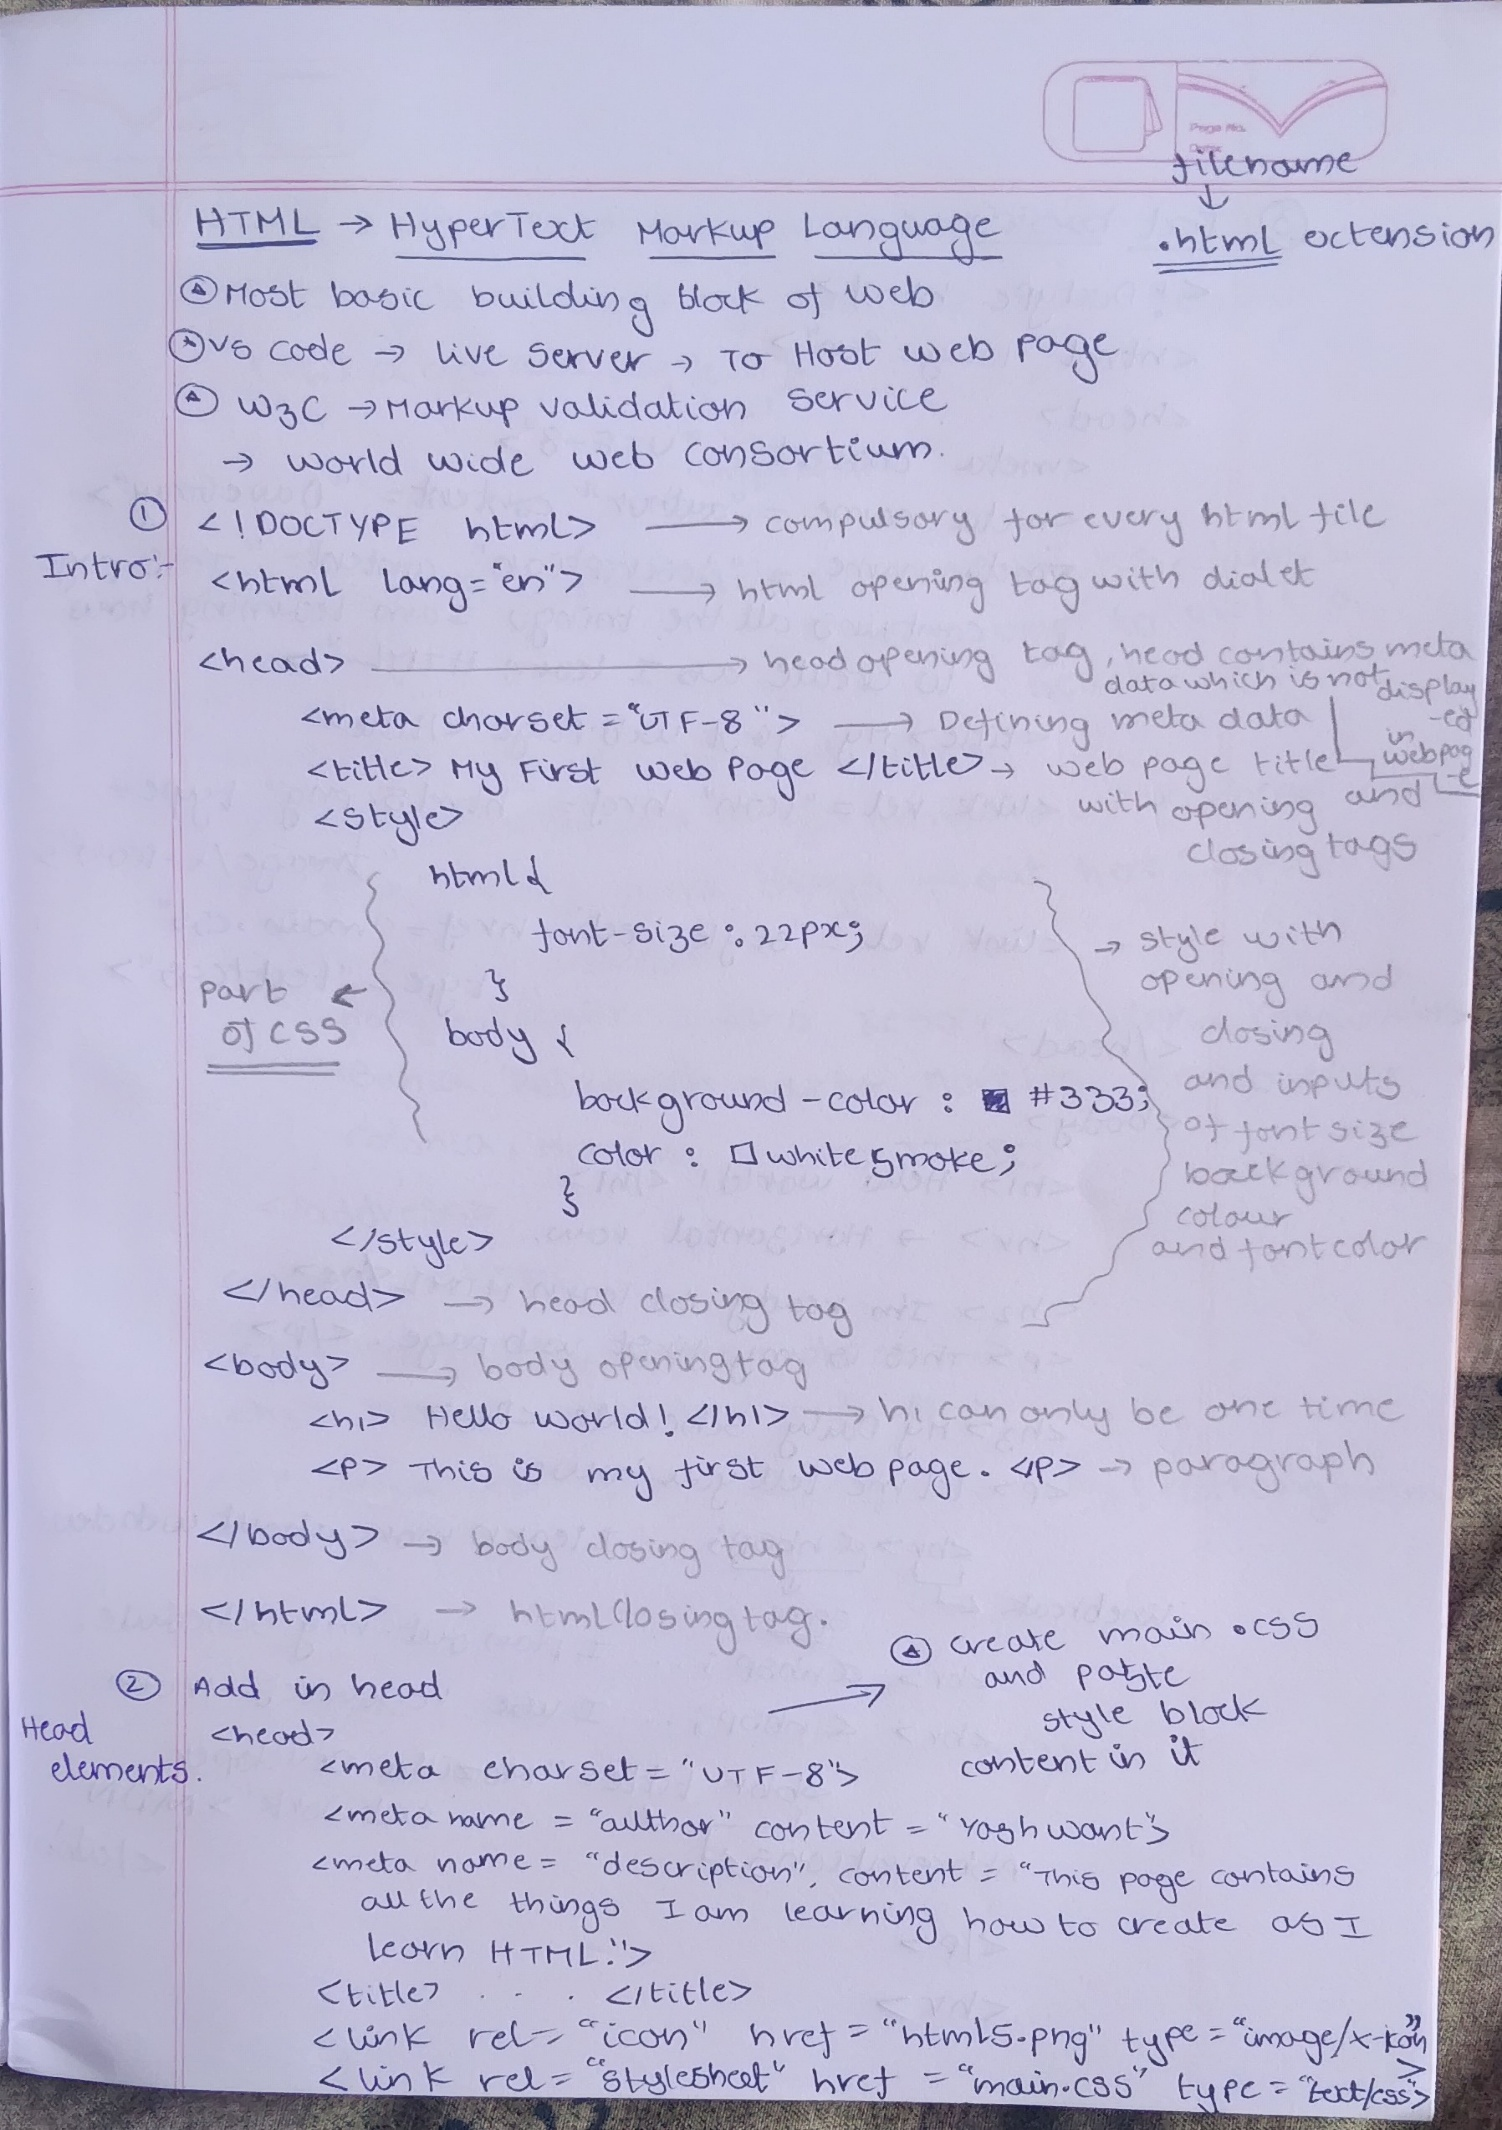 Page No.
filename
↓
HTML → HyperText Markup Language .html extension
Most basic building block of web
VS code → live server → To Host web page
W3C → Markup validation service
→ world wide web consortium.
① <!DOCTYPE html> → compulsory for every html file
Intro:-
<html lang="en"> → html opening tag with dialet
<head> → head opening tag, head contains meta
data which is not display
-ed
in
webpag
-e
<meta charset="UTF-8"> → Defining meta data
<title> My First Web Page </title> → web page title
with opening and
closing tags
<style>
html{
font-size : 22px;
}
part of CSS
body {
background-color : #333;
color : whitesmoke;
}
→ style with
opening and
closing
and inputs
of font size
background
colour
and font color
</style>
</head> → head closing tag
<body> → body opening tag
<h1> Hello world! </h1> → h1 can only be one time
<p> This is my first web page. </p> → paragraph
</body> → body closing tag
</html> → html closing tag.
② Add in head
Head elements.
create main.css
and paste
style block
content in it
<head>
<meta charset="UTF-8">
<meta name = "author" content = "Yashwant">
<meta name = "description", content = "This page contains
all the things I am learning how to create as I
learn HTML.">
<title> . . . </title>
<link rel= "icon" href="html5.png" type="image/x-icon"
>
<link rel= "stylesheet" href = "main.css" type="text/css">